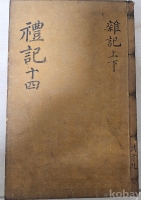 雜記上下
禮記十四
kobay